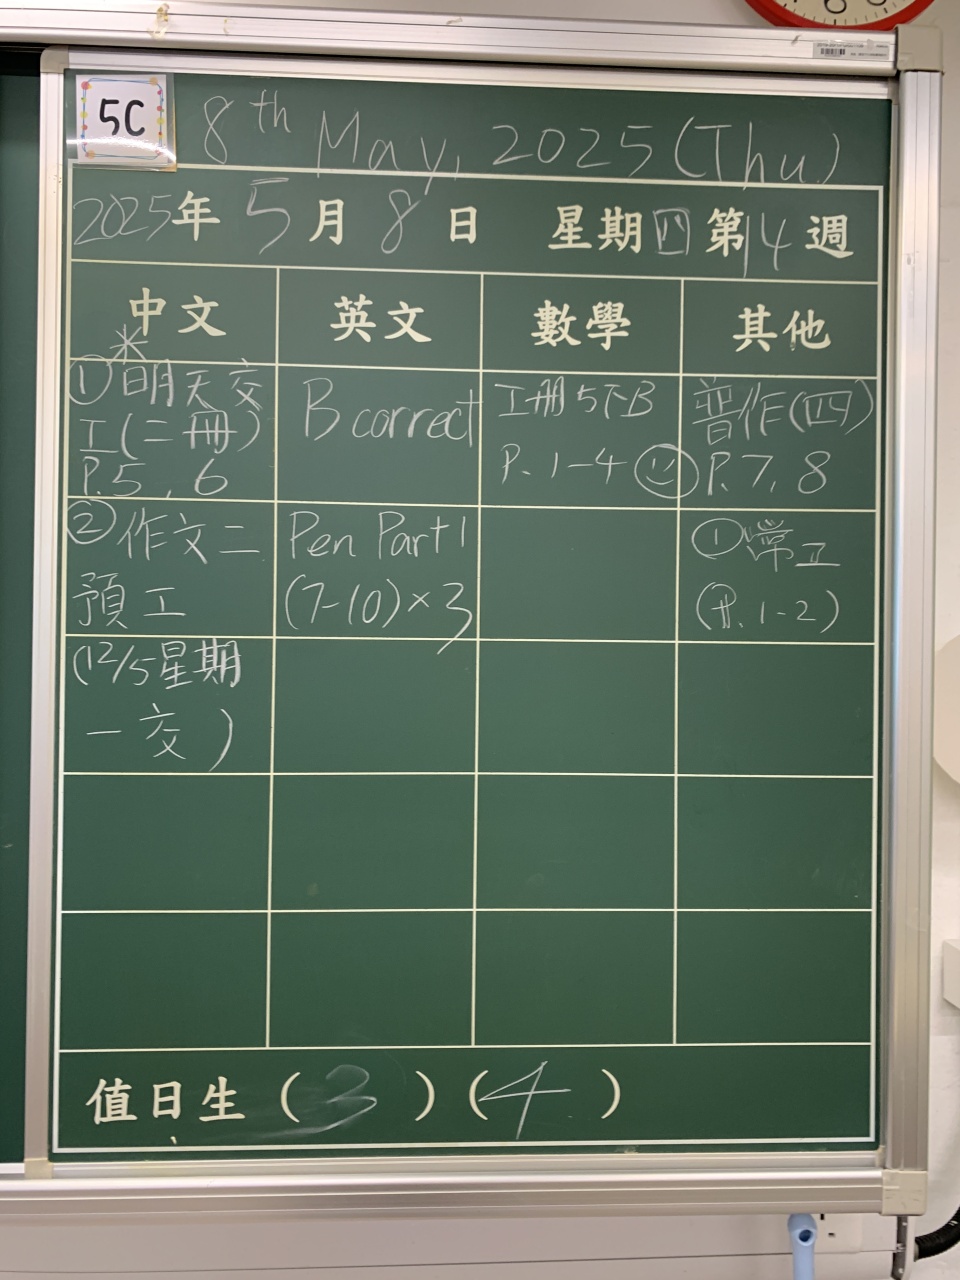 5C
8th May, 2025 (Thu)
2025年 5月 8日 星期四 第14週
中文 英文 數學 其他
*
①明天交
工(二冊)
P.5, 6
B correct
工册5下B
P. 1-4
普作(四)
P. 7, 8
②作文二
預工
Pen Part 1
(7-10)×3
①常工
(P. 1-2)
(12/5星期
一交)
值日生 (3) (4)